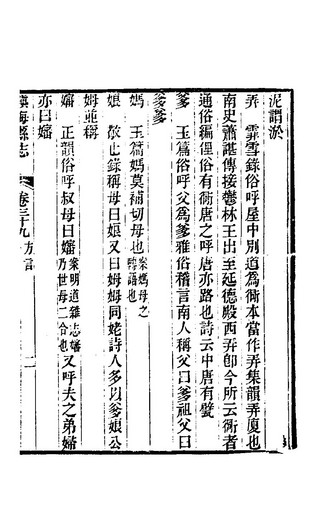 泥謂淤
弄　霏雪錄俗呼屋中別道爲衖本當作弄集韻弄厦也
南史蕭諶傳接鬱林王出至延德殿西弄卽今所云衖者
通俗編俚俗有衖唐之呼唐亦路也詩云中唐有甓
爹　玉篇俗呼父爲爹雅俗稽言南人稱父曰爹祖父曰
爹爹
媽　玉篇媽莫補切母也案媽母之轉語也
娘　敬止錄稱母曰娘又曰姆姆同姥詩人多以爹娘公
姆並稱
嬸　正韻俗呼叔母曰嬸案明道雜志嬸乃世母二合也又呼夫之弟婦
亦曰嬸
鎭海縣志
卷三十九方言
二